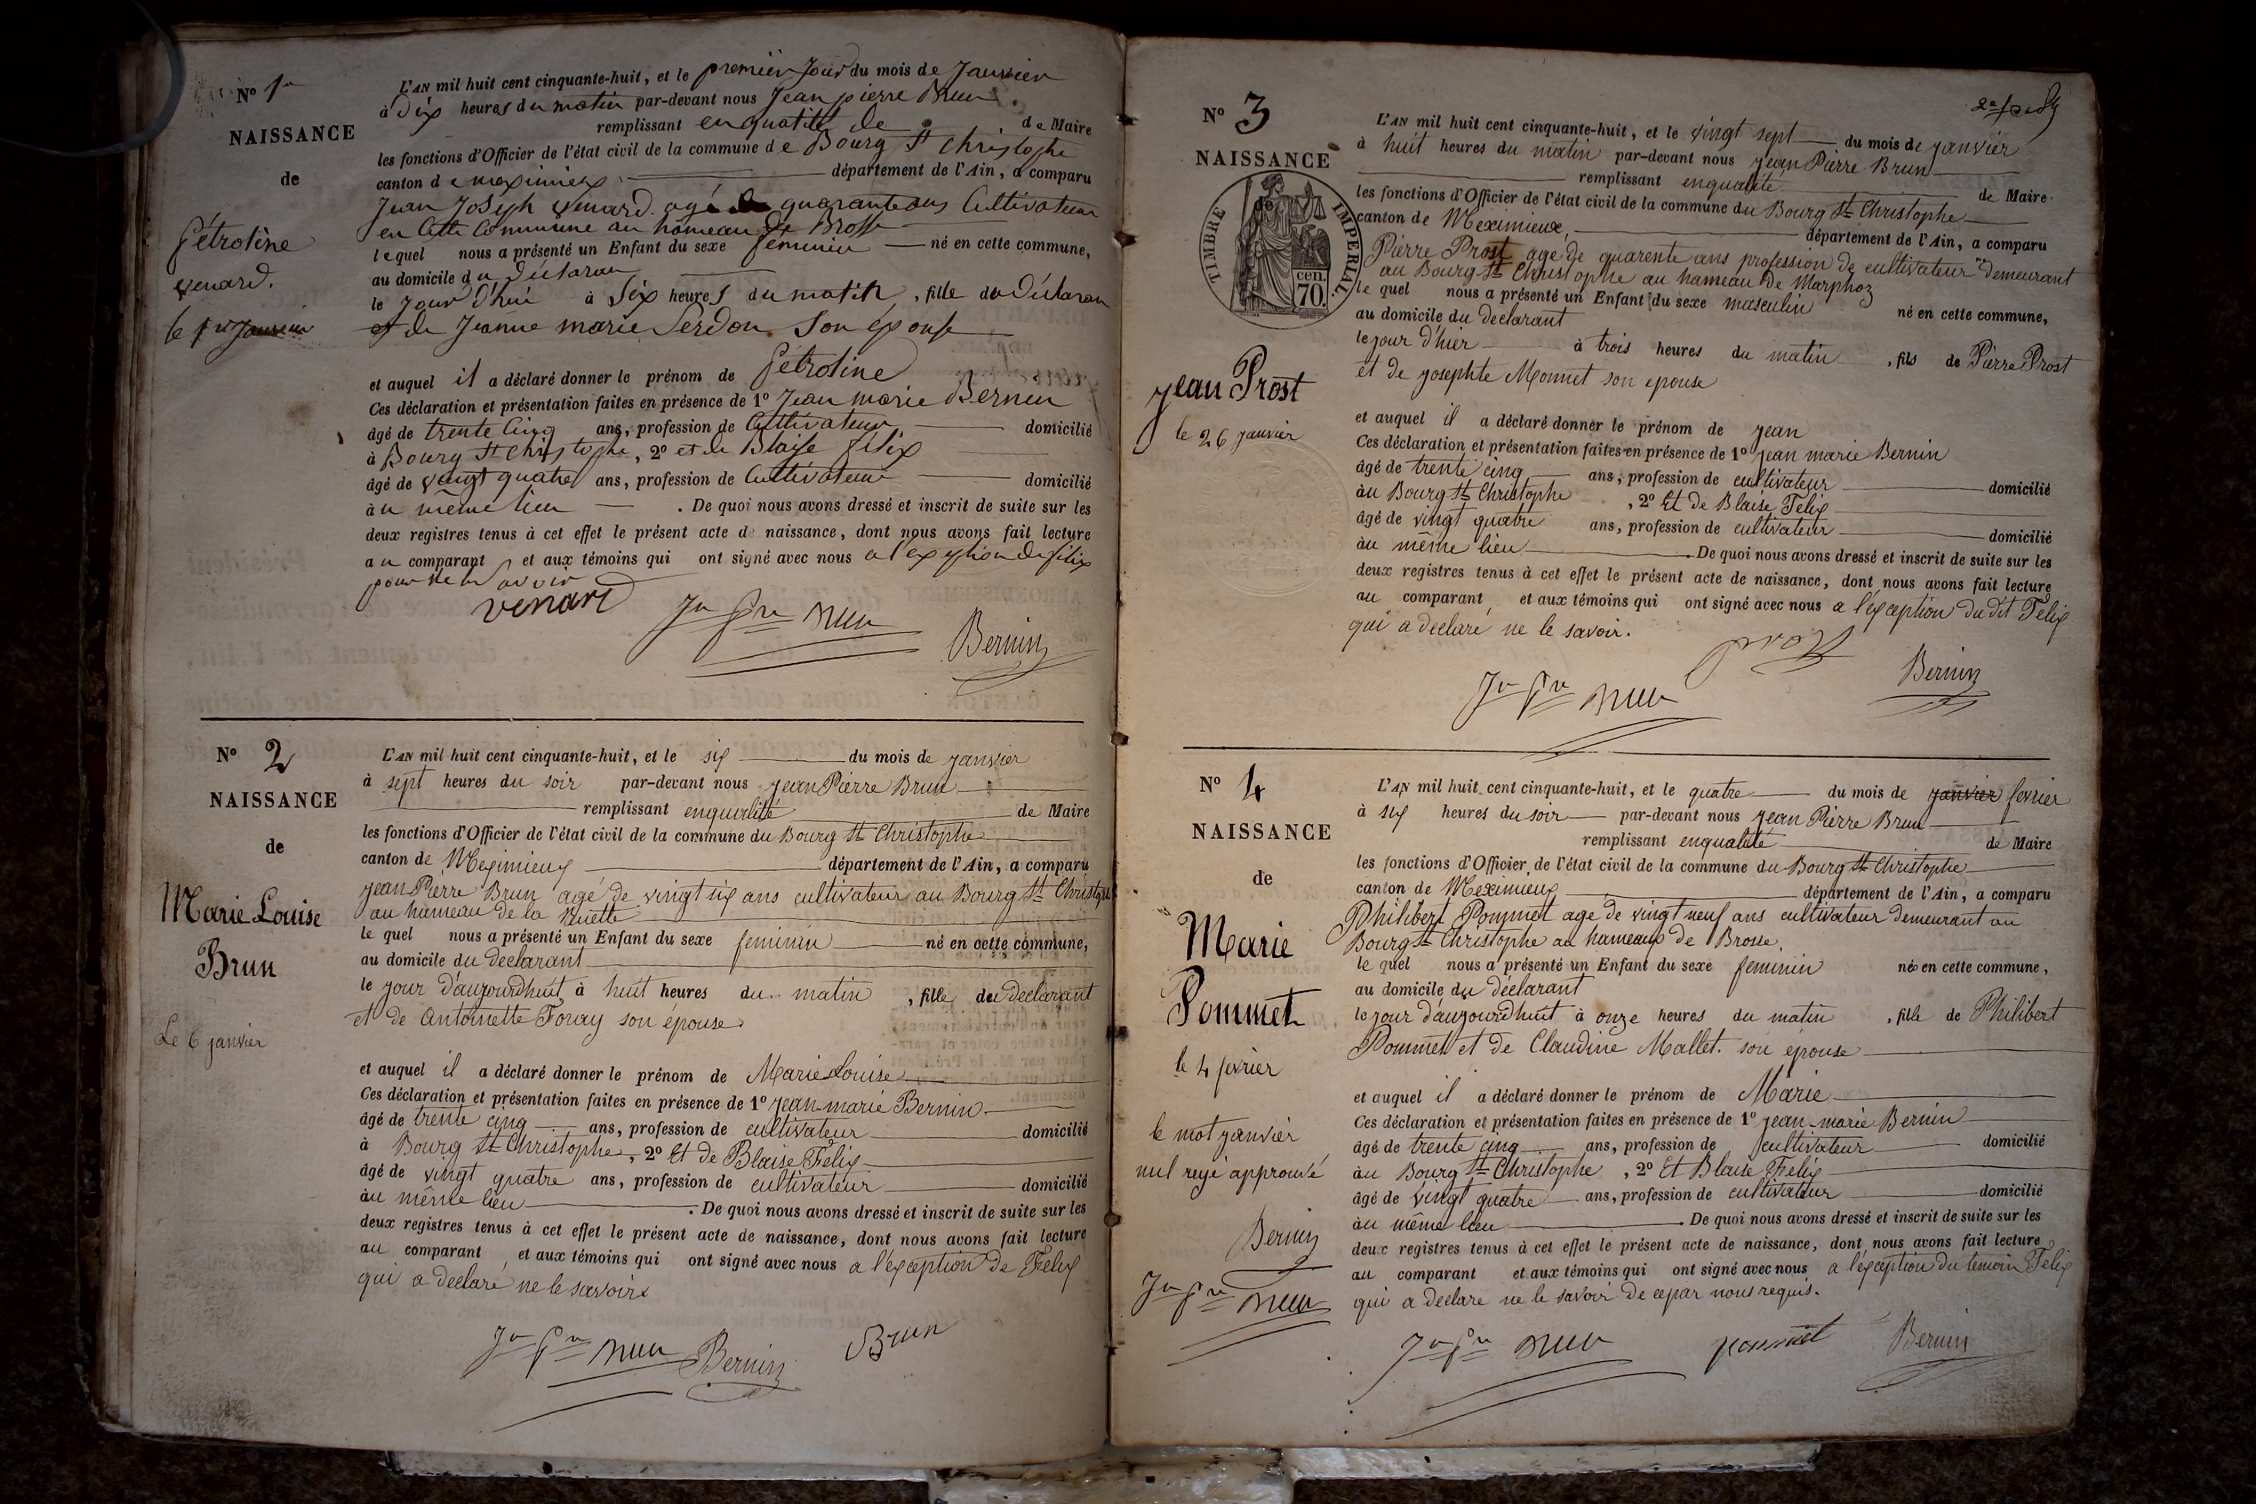 N° 1er
NAISSANCE
de
Pétroline
Venard.
le 1er Janvier
L'AN mil huit cent cinquante-huit, et le premier Jour du mois de Janvier
à Dix heures du matin par-devant nous Jean pierre Brun
remplissant en qualité de de Maire
les fonctions d'Officier de l'état civil de la commune de Bourg St Christophe
canton de meximieux département de l'Ain, a comparu
Jean Joseph Venard agé de quarante ans Cultivateur
en Cette Commune au hameau de Brosse
lequel nous a présenté un Enfant du sexe féminin né en cette commune,
au domicile du déclaran
le Jour d'hui à Six heures du matin, fille du Déclaran
et de Jeanne marie Serdon Son épouse
et auquel il a déclaré donner le prénom de Pétroline
Ces déclaration et présentation faites en présence de 1° Jean marie Bernin
âgé de trente Cinq ans, profession de Cultivateur domicilié
à Bourg St Christophe, 2° et de Blaise félix
âgé de vingt quatre ans, profession de Cultivateur domicilié
au même lieu . De quoi nous avons dressé et inscrit de suite sur les
deux registres tenus à cet effet le présent acte de naissance, dont nous avons fait lecture
au comparant et aux témoins qui ont signé avec nous a l'exception de félix
pour ne le savoir
venard
Jn Pre Brun
Bernin
N° 2
NAISSANCE
de
Marie Louise
Brun
Le 6 janvier
L'AN mil huit cent cinquante-huit, et le six du mois de janvier
à sept heures du soir par-devant nous jean Pierre Brun
remplissant enqualité de Maire
les fonctions d'Officier de l'état civil de la commune du Bourg St Christophe
canton de Meximieux département de l'Ain, a comparu
jean Pierre Brun agé de vingt six ans cultivateur au Bourg St Christophe
au hameau de la
le quel nous a présenté un Enfant du sexe feminin né en cette commune,
au domicile du declarant
le jour d'aujourdhuit à huit heures du matin, fille du declarant
et de Antoinette Fouray son épouse
et auquel il a déclaré donner le prénom de Marie Louise
Ces déclaration et présentation faites en présence de 1° jean marie Bernin
âgé de trente cinq ans, profession de cultivateur domicilié
à Bourg St Christophe, 2° Et de Blaise Félix
âgé de vingt quatre ans, profession de cultivateur domicilié
au même lieu . De quoi nous avons dressé et inscrit de suite sur les
deux registres tenus à cet effet le présent acte de naissance, dont nous avons fait lecture
au comparant et aux témoins qui ont signé avec nous a l'éxception de Felix
qui a declaré ne le savoir
Jn Pre Brun
Bernin
Brun
N° 3
NAISSANCE
de
TIMBRE IMPERIAL.
70 cen.
jean Prost
le 26 janvier
L'AN mil huit cent cinquante-huit, et le vingt sept du mois de janvier
à huit heures du matin par-devant nous jean Pierre Brun
remplissant enqualité de Maire
les fonctions d'Officier de l'état civil de la commune du Bourg St Christophe
canton de Meximieux, département de l'Ain, a comparu
Pierre Prost agé de quarente ans profession de cultivateur demeurant
au Bourg St Christophe au hameau de Marphoz
le quel nous a présenté un Enfant du sexe masculin né en cette commune,
au domicile du declarant
le jour d'hier à trois heures du matin, fils de Pierre Prost
et de josephte Monnet son epouse
et auquel il a déclaré donner le prénom de jean
Ces déclaration et présentation faites en présence de 1° jean marie Bernin
âgé de trente cinq ans, profession de cultivateur domicilié
au Bourg St Christophe, 2° Et de Blaise Felix
âgé de vingt quatre ans, profession de cultivateur domicilié
au même lieu . De quoi nous avons dressé et inscrit de suite sur les
deux registres tenus à cet effet le présent acte de naissance, dont nous avons fait lecture
au comparant et aux témoins qui ont signé avec nous a l'éxception du dit Felix
qui a declaré ne le savoir.
prost
Jn Pre Brun
Bernin
N° 4
NAISSANCE
de
Marie
Pommet
le 4 fevrier
le mot janvier
nul reyé approuvé
Bernin
Jn Pre Brun
L'AN mil huit cent cinquante-huit, et le quatre du mois de janvier fevrier
à six heures du soir par-devant nous jean Pierre Brun
remplissant enqualité de Maire
les fonctions d'Officier de l'état civil de la commune du Bourg St Christophe
canton de Meximieux département de l'Ain, a comparu
Philibert Pommet age de vingt neuf ans cultivateur demeurant au
Bourg St Christophe au hameaux de Brosse.
le quel nous a présenté un Enfant du sexe feminin née en cette commune,
au domicile du déclarant
le jour d'aujourdhuit à onze heures du matin, fille de Philibert
Pommet et de Claudine Mallet. son épouse
et auquel il a déclaré donner le prénom de Marie
Ces déclaration et présentation faites en présence de 1° jean-marie Bernin
âgé de trente cinq ans, profession de cultivateur domicilié
au Bourg St Christophe, 2° Et Blaise Félix
âgé de vingt quatre ans, profession de cultivateur domicilié
au même lieu . De quoi nous avons dressé et inscrit de suite sur les
deux registres tenus à cet effet le présent acte de naissance, dont nous avons fait lecture
au comparant et aux témoins qui ont signé avec nous a l'éxception du temoin Felix
qui a declaré ne le savoir de ce par nous requis.
Jn Pre Brun
pommet
Bernin